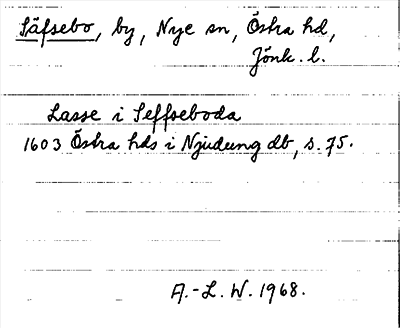 Säfsebo, by, Nye sn, Östra hd,
Jönk. l.
Lasse i Seffseboda
1603 Östra hds i Njudung db, s. 75.
A.-L. W. 1968.